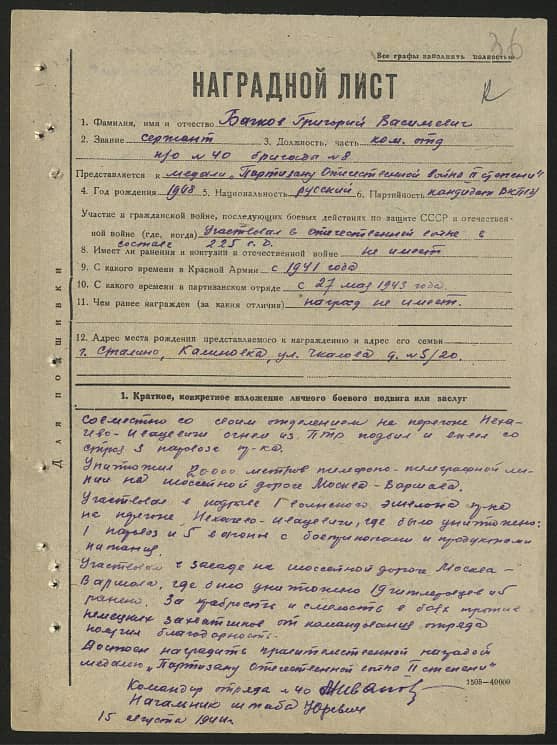 36
Все графы заполнять полностью
НАГРАДНОЙ ЛИСТ
1. Фамилия, имя и отчество Бачков Григорий Васильевич
2. Звание сержант 3. Должность, часть ком. отд
п/о № 40 бригада № 8
Представляется к медали „Партизану Отечественной войны II степени"
4. Год рождения 1918 5. Национальность русский 6. Партийность кандидат ВКП(б)
Участие в гражданской войне, последующих боевых действиях по защите СССР и отечествен-
ной войне (где, когда) Участвовал в отечественной войне в
составе 225 с.д.
8. Имеет ли ранения и контузии в отечественной войне не имеет
9. С какого времени в Красной Армии с 1941 года
10. С какого времени в партизанском отряде с 27 мая 1943 года
11. Чем ранее награжден (за какия отличия) наград не имеет.
12. Адрес места рождения представляемого к награждению и адрес его семьи
г. Сталино, Калиновка, ул. Чкалова д. № 5/20.
Для подшивки
1. Краткое, конкретное изложение личного боевого подвига или заслуг
Совместно со своим отделением на перегоне Неха-
чево-Ивацевичи огнем из ПТР подбил и вывел со
строя 3 паровоза пр-ка.
Уничтожил 20000 метров телефоно-телеграфной ли-
нии на шоссейной дороге Москва-Варшава.
Участвовал в подрыве 1 воинского эшелона пр-ка
на перегоне Нехачево-Ивацевичи, где было уничтожено:
1 паровоз и 5 вагоны с боеприпасами и продуктами
питания.
Участвовал в засаде на шоссейной дороге Москва-
Варшава, где было уничтожено 19 гитлеровцев и 5
ранено. За храбрость и смелость в боях против
немецких захватчиков от командования отряда
получил благодарность.
Достоин наградить правительственной наградой
медалью „Партизану Отечественной войны II степени"
Командир отряда № 40 Иванов
1505-40000
Начальник штаба Юревич
15 августа 1944 г.